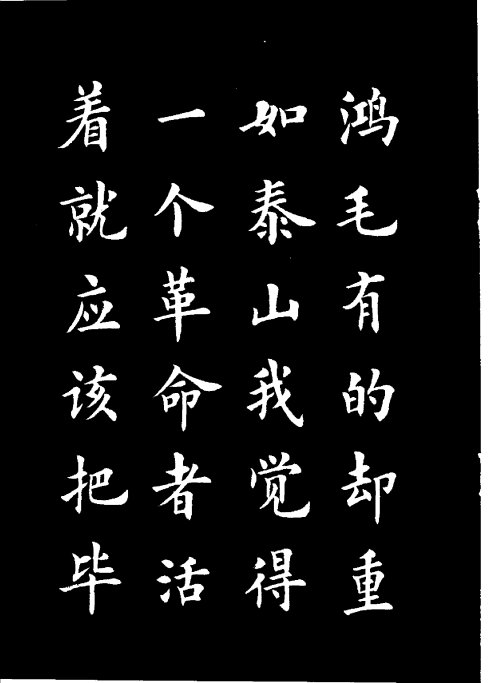 鸿毛有的却重
如泰山我觉得
一个革命者活
着就应该把毕